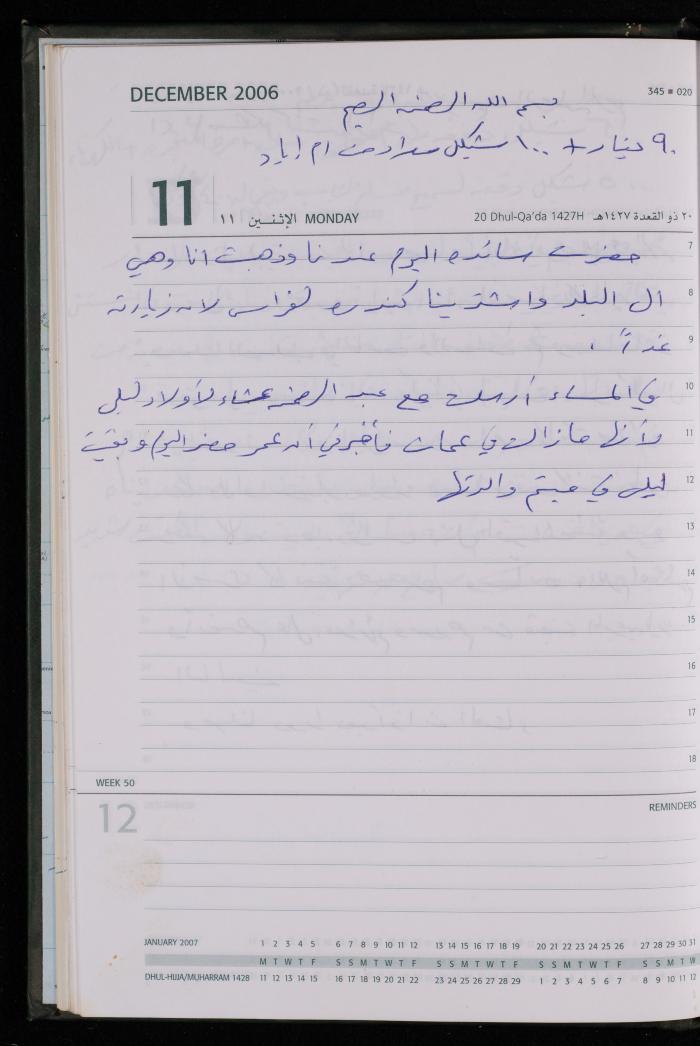 DECEMBER 2006
345 ■ 020
بسم الله الرحمن الرحيم
٩٠ دينار + ١٠٠ شيكل سداد من ام اياد
11 ١١ الإثنين MONDAY
20 Dhul-Qa'da 1427H ٢٠ ذو القعدة ١٤٢٧هـ
7 حضرت سائده اليوم عندنا وذهبت انا وهي
8 ال البلد واشترينا كندره لفراس لانه زيارته
9 غداً .
10 في المساء أرسلت مع عبد الرحمن عشاء لأولاد ليلى
11 لأنها مازالت في عمان فأخبرني أن عمر حضر اليوم وبقيت
12 ليلى في ميتم والدتها
13
14
15
16
17
18
WEEK 50
12
REMINDERS
JANUARY 2007 1 2 3 4 5 6 7 8 9 10 11 12 13 14 15 16 17 18 19 20 21 22 23 24 25 26 27 28 29 30 31
M T W T F S S M T W T F S S M T W T F S S M T W T F S S M T W
DHUL-HIJJA/MUHARRAM 1428 11 12 13 14 15 16 17 18 19 20 21 22 23 24 25 26 27 28 29 1 2 3 4 5 6 7 8 9 10 11 12